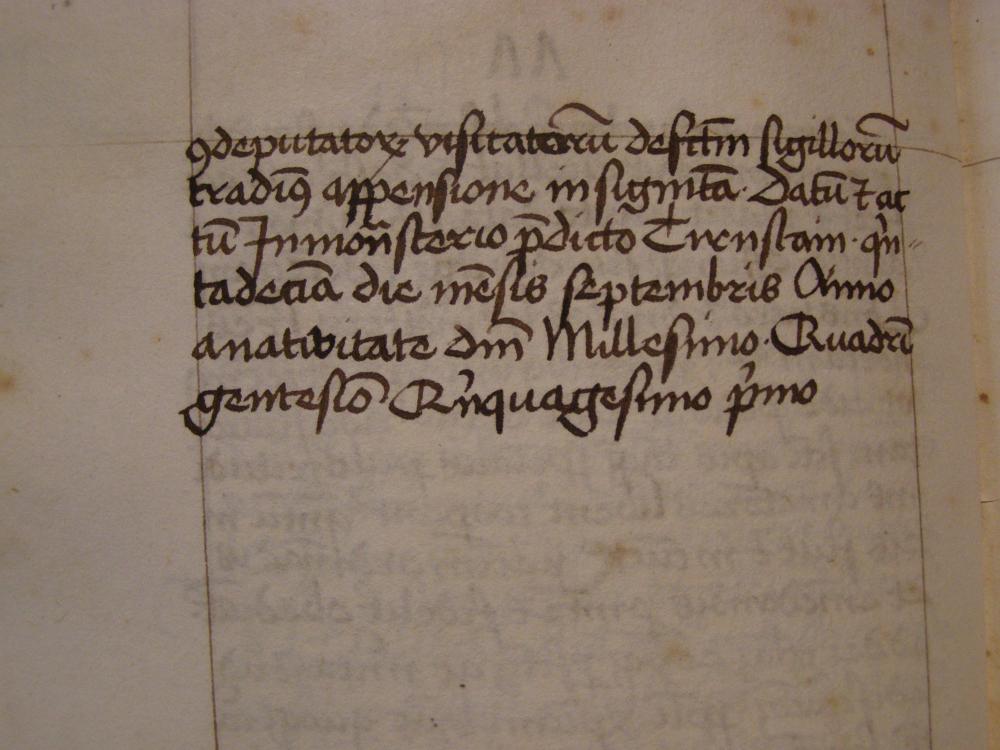 ꝯdeputatoꝝ visitatorū desctm̄ sigillorū
tradimꝰ appensione insignita. Datū ⁊ ac
tū In monr̄sterio p̄dicto Tirnstain. qͥn-
tadecīa die mēsis septembris Anno
anativitate dm̄ Millesimo. Quadrī
gentesiō Qͥnquagesimo pͥmo